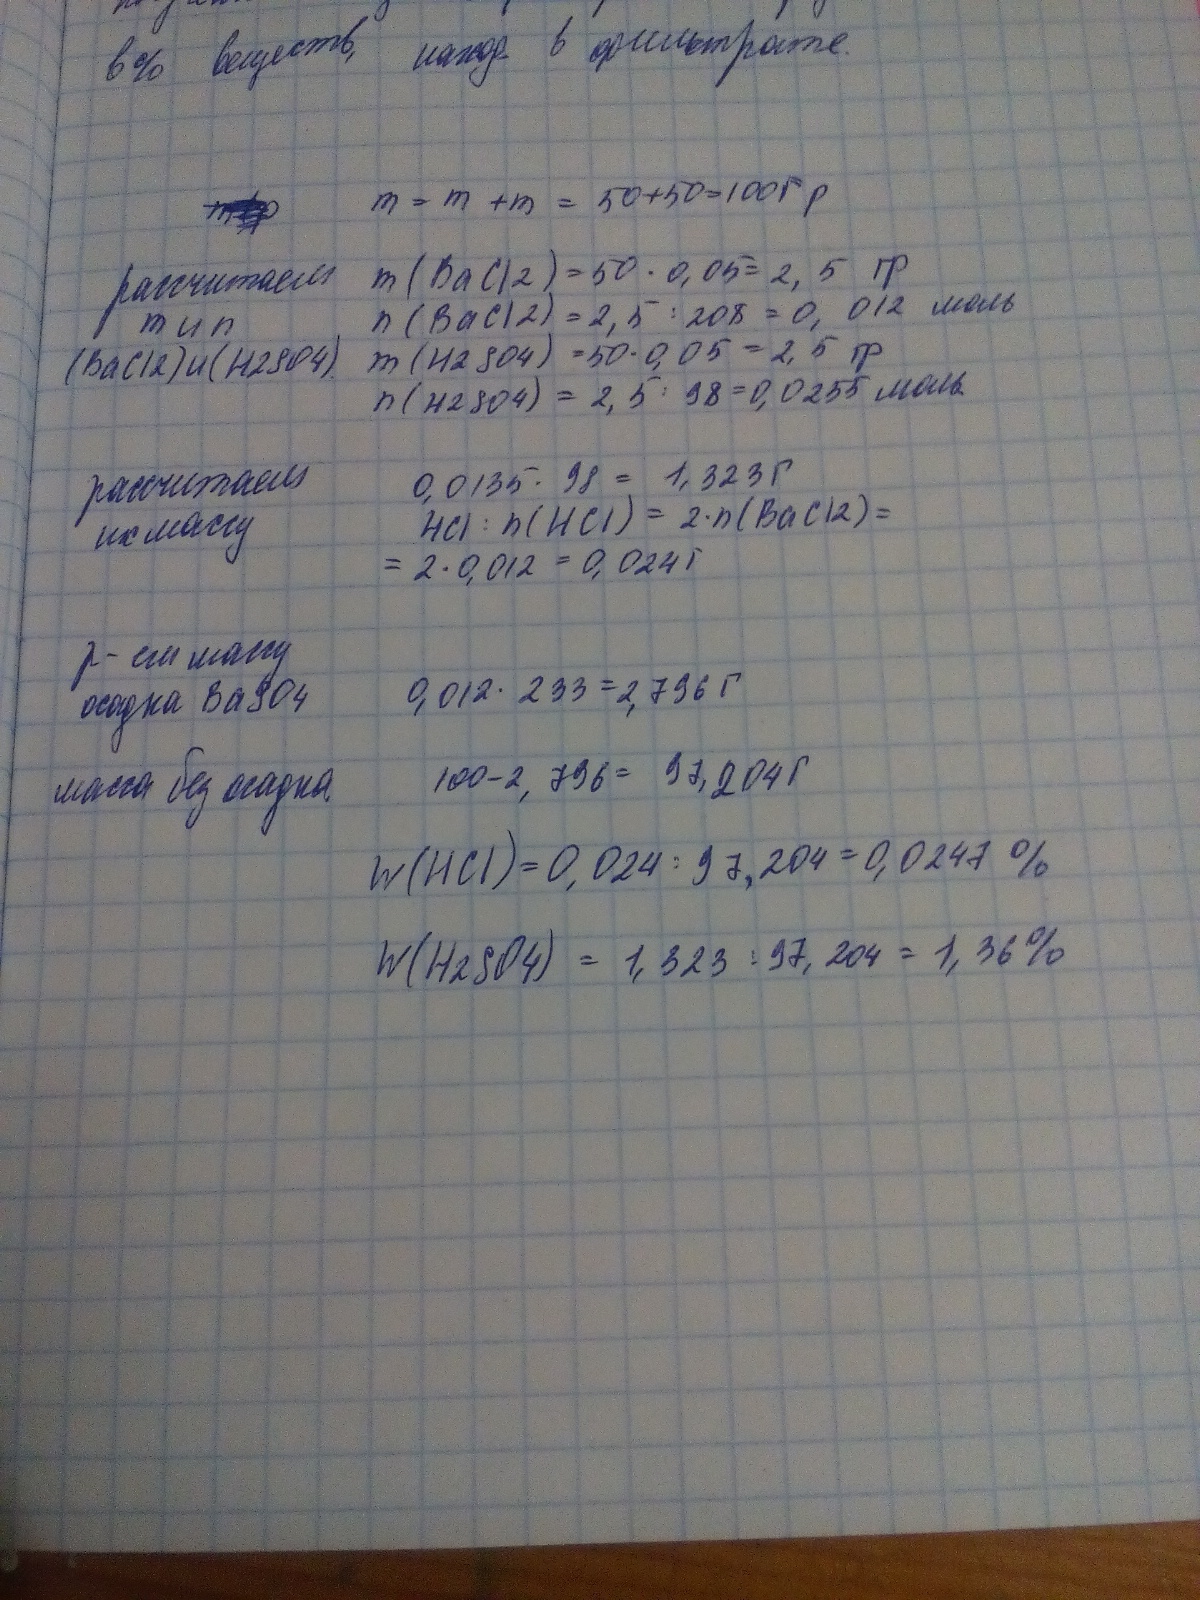 в % веществ, наход в фильтрате.
m = m + m = 50+50=100Гр
рассчитаем m (BaCl2) = 50 · 0,05 = 2,5 гр
m и n n (BaCl2) = 2,5 : 208 = 0,012 моль
(BaCl2) и (H2SO4). m (H2SO4) = 50·0,05 = 2,5 гр
n (H2SO4) = 2,5 : 98 = 0,0255 моль
рассчитаем 0,0135 · 98 = 1,323 Г
их массу HCl : n(HCl) = 2·n(BaCl2) =
= 2·0,012 = 0,024 г
р-ем массу
осадка BaSO4 0,012 · 233 = 2,796 Г
масса без осадка. 100-2,796 = 97,204 Г
W(HCl) = 0,024 : 97,204 = 0,0247 %
W(H2SO4) = 1,323 : 97,204 = 1,36%